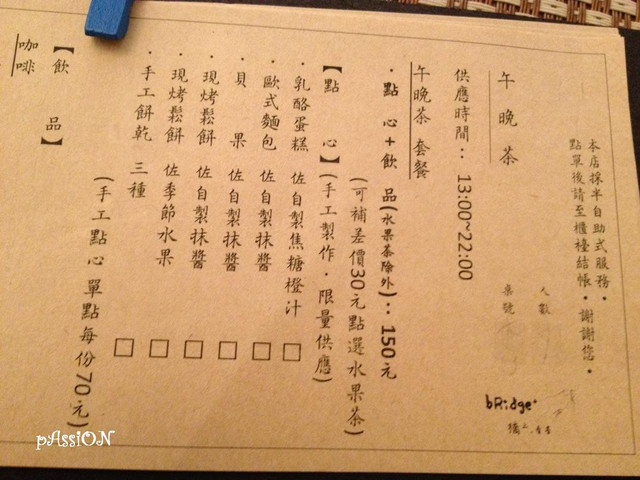 本店採半自助式服務。
點單後請至櫃檯結帳。謝謝您。
人數
桌號
bRidge+
午晚茶
供應時間：13:00~22:00
午晚茶 套餐
・點 心+飲 品(水果茶除外)：150元
(可補差價30元點選水果茶)
【點 心】(手工製作・限量供應)
・乳酪蛋糕 佐自製焦糖橙汁 □
・歐式麵包 佐自製抹醬 □
・貝 果 佐自製抹醬 □
・現烤鬆餅 佐自製抹醬 □
・現烤鬆餅 佐季節水果 □
・手工餅乾 三種 □
(手工點心 單點每份70元)
【飲 品】
咖啡
pAssiON